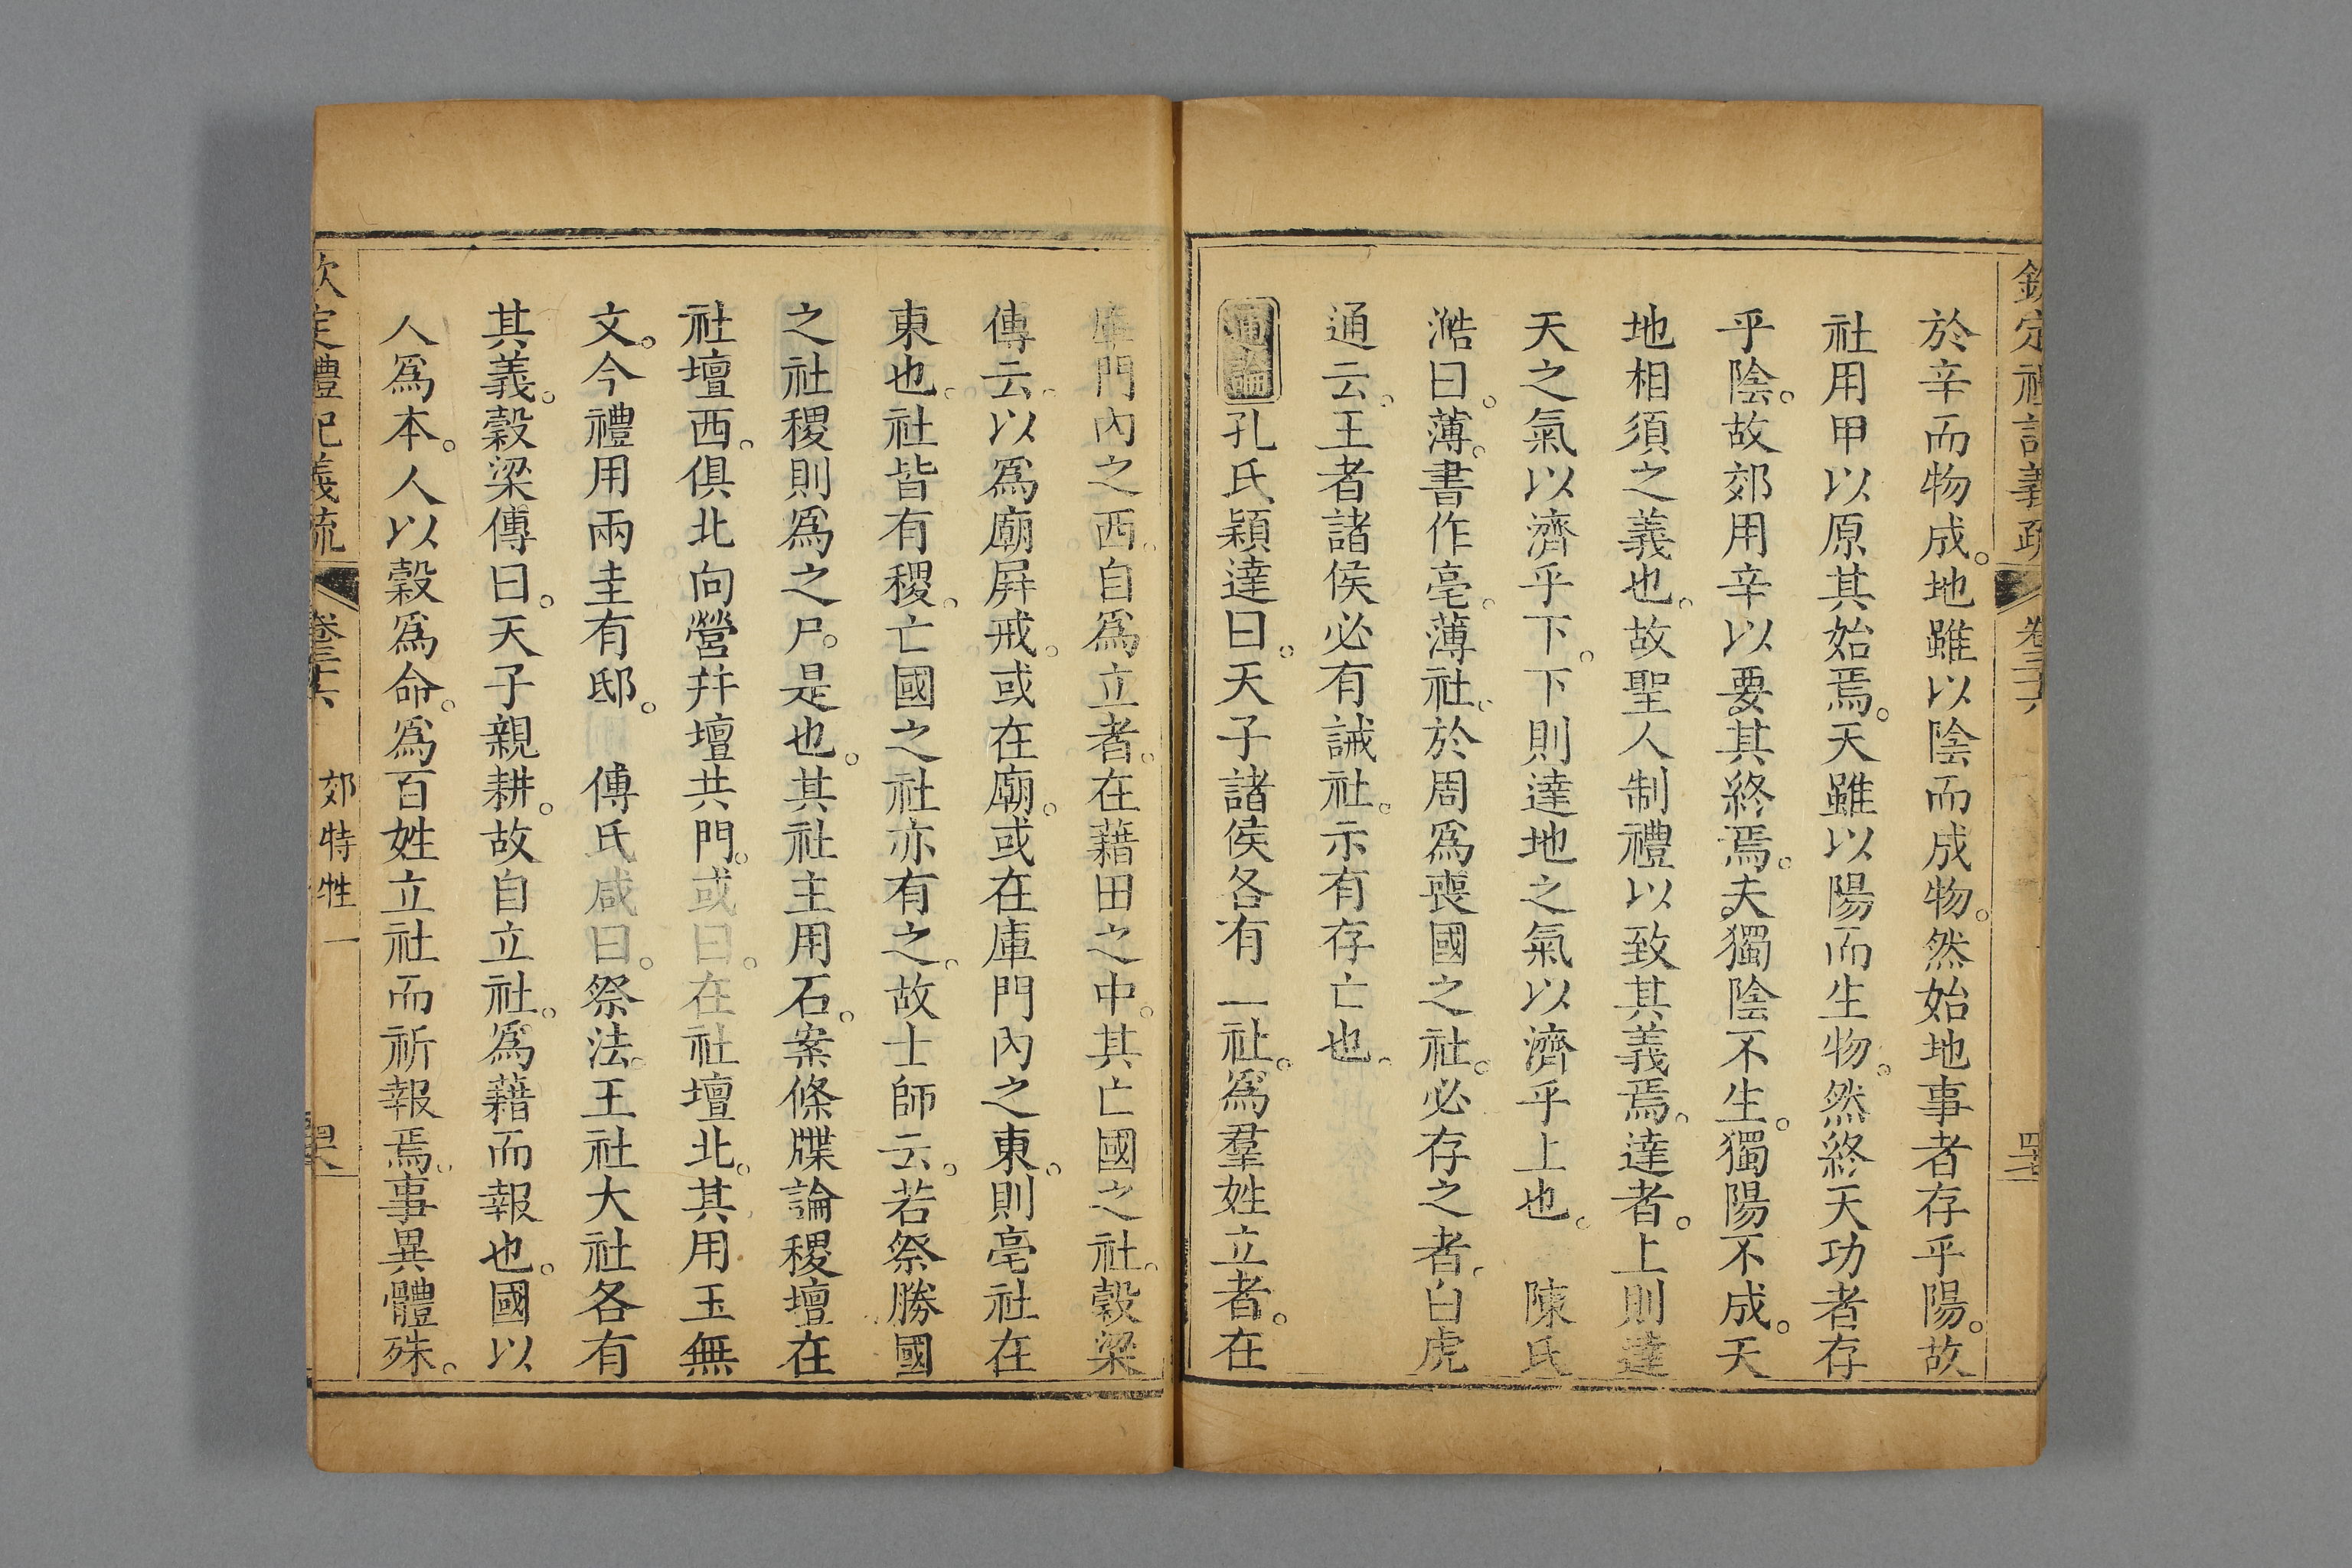 欽定禮記義疏 卷三十六
於辛而物成。地雖以陰而成物。然始地事者存乎陽。故
社用甲以原其始焉。天雖以陽而生物。然終天功者存
乎陰。故郊用辛以要其終焉。夫獨陰不生。獨陽不成。天
地相須之義也。故聖人制禮以致其義焉。達者。上則達
天之氣以濟乎下。下則達地之氣以濟乎上也。 陳氏
澔曰。薄。書作亳。薄社。於周爲喪國之社。必存之者。白虎
通云。王者諸侯必有誡社。示有存亡也。
通論 孔氏穎達曰。天子諸侯各有一社。爲羣姓立者。在
庫門內之西。自爲立者。在藉田之中。其亡國之社。穀梁
傳云。以爲廟屛戒。或在廟。或在庫門內之東。則亳社在
東也。社皆有稷。亡國之社亦有之。故士師云。若祭勝國
之社稷則爲之尸。是也。其社主用石。案條牒論稷壇在
社壇西。俱北向營幷壇共門。或曰。在社壇北。其用玉無
文。今禮用兩圭有邸。 傅氏咸曰。祭法。王社大社各有
其義。穀梁傳曰。天子親耕。故自立社。爲藉而報也。國以
人爲本。人以穀爲命。爲百姓立社而祈報焉。事異體殊。
欽定禮記義疏 卷三十六 郊特牲一